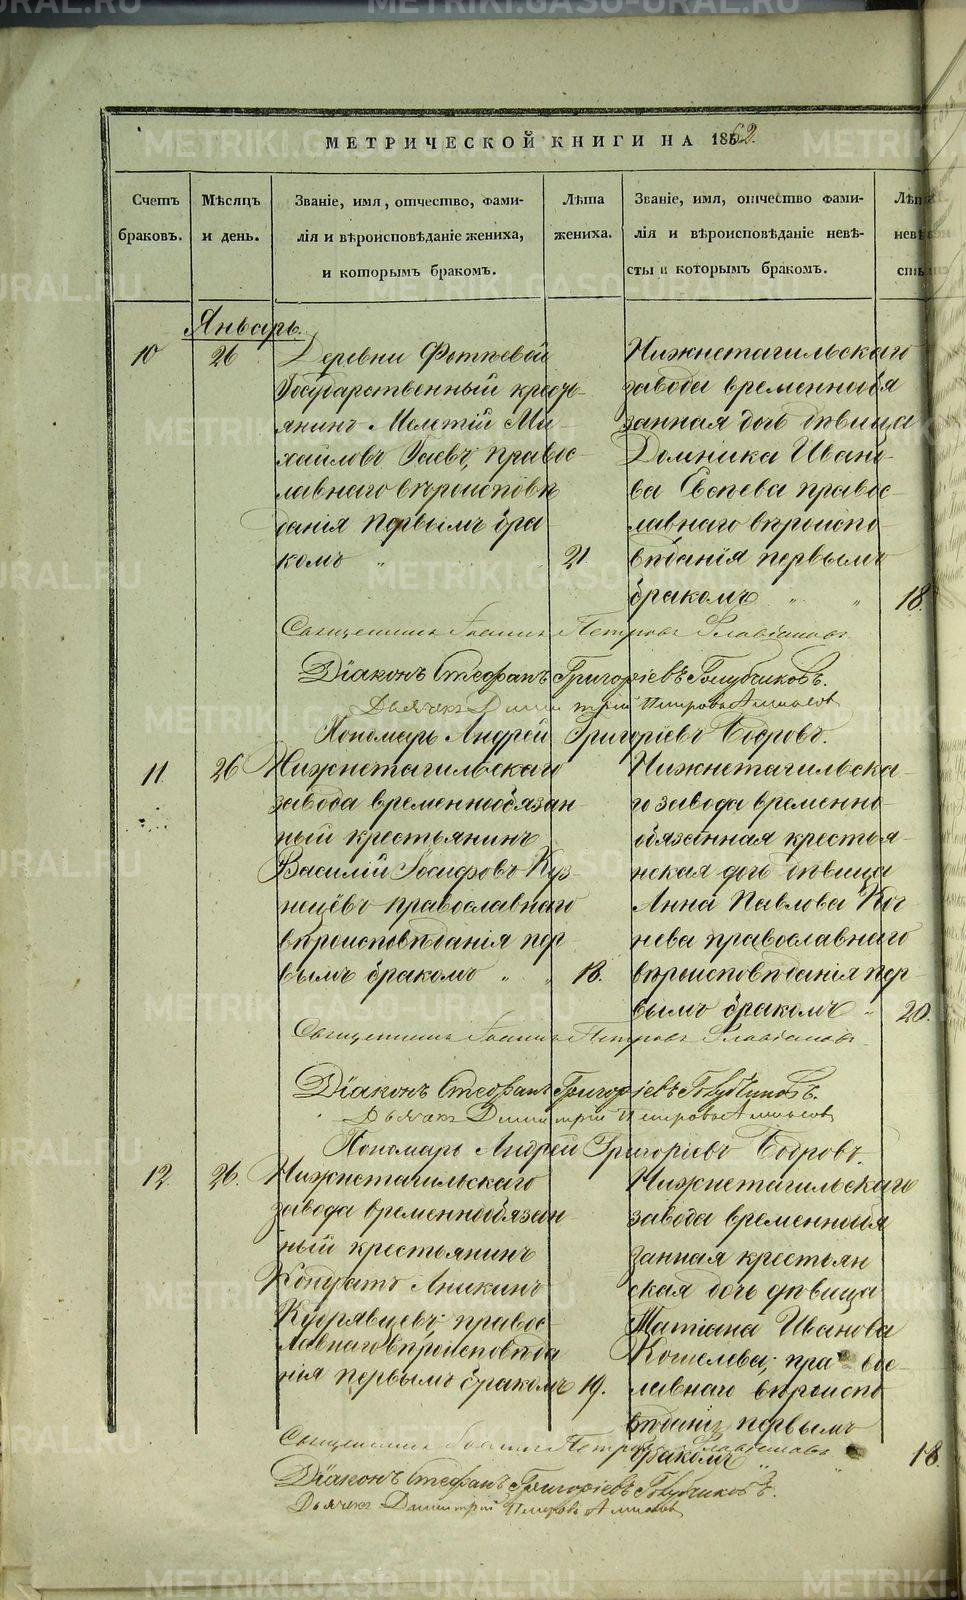 МЕТРИЧЕСКОЙ КНИГИ НА 1862.
Счетъ браковъ.
Мѣсяцъ и день.
Званіе, имя, отчество, фами-
лія и вѣроисповѣданіе жениха,
и которымъ бракомъ.
Лѣта жениха.
Званіе, имя, отчество фами-
лія и вѣроисповѣданіе невѣ-
сты и которымъ бракомъ.
Лѣта
невѣ
сты
Январь.
10
26
Деревни
Государственный кресть-
янинъ Мелетій Ми-
хайловъ Гаевъ, правос-
лавнаго вѣроисповѣ
данія первымъ бра
комъ „
21
Нижнетагильскаго
завода временнообя
занная дочь дѣвица
Домника Ивано-
ва правос-
лавнаго вѣроиспо-
вѣданія первымъ
бракомъ „ „
18.
Священникъ Іоаннъ Петровъ Славіановъ
Діаконъ Стефанъ Григоріевъ Голубчиковъ.
Дьячекъ Димитрій Петровъ
Пономарь Андрей Григоріевъ Бобровъ.
11.
26
Нижнетагильскаго
завода временнообязан
ный крестьянинъ
Василій Іосифовъ Куз-
нецёвъ православнаго
вѣроисповѣданія пер
вымъ бракомъ „ „
18.
Нижнетагильска-
го завода временно
обязанная крестья-
нская дочь дѣвица
Анна Павлова
нева православнаго
вѣроисповѣданія пер-
вымъ бракомъ „
20.
Священникъ Іоаннъ Петровъ Славіановъ.
Діаконъ Стефанъ Григоріевъ Голубчиковъ.
Дьячекъ Димитрій Петровъ
Пономарь Андрей Григоріевъ Бобровъ.
12.
26.
Нижнетагильскаго
завода временнообязан-
ный крестьянинъ
Кондратъ Аникинъ
Кудрявцевъ правос-
лавнаго вѣроисповѣда
нія первымъ бракомъ
19.
Нижнетагильскаго
завода временнообя
занная крестьян
ская дочь дѣвица
Татіана Иванова
Кошелева, правос-
лавнаго вѣроиспо
вѣданія первымъ
бракомъ „ „
18.
Священникъ Іоаннъ Петровъ Славіановъ
Діаконъ Стефанъ Григоріевъ Голубчиковъ.
Дьячекъ Димитрій Петровъ
METRIKI.GASO-URAL.RU